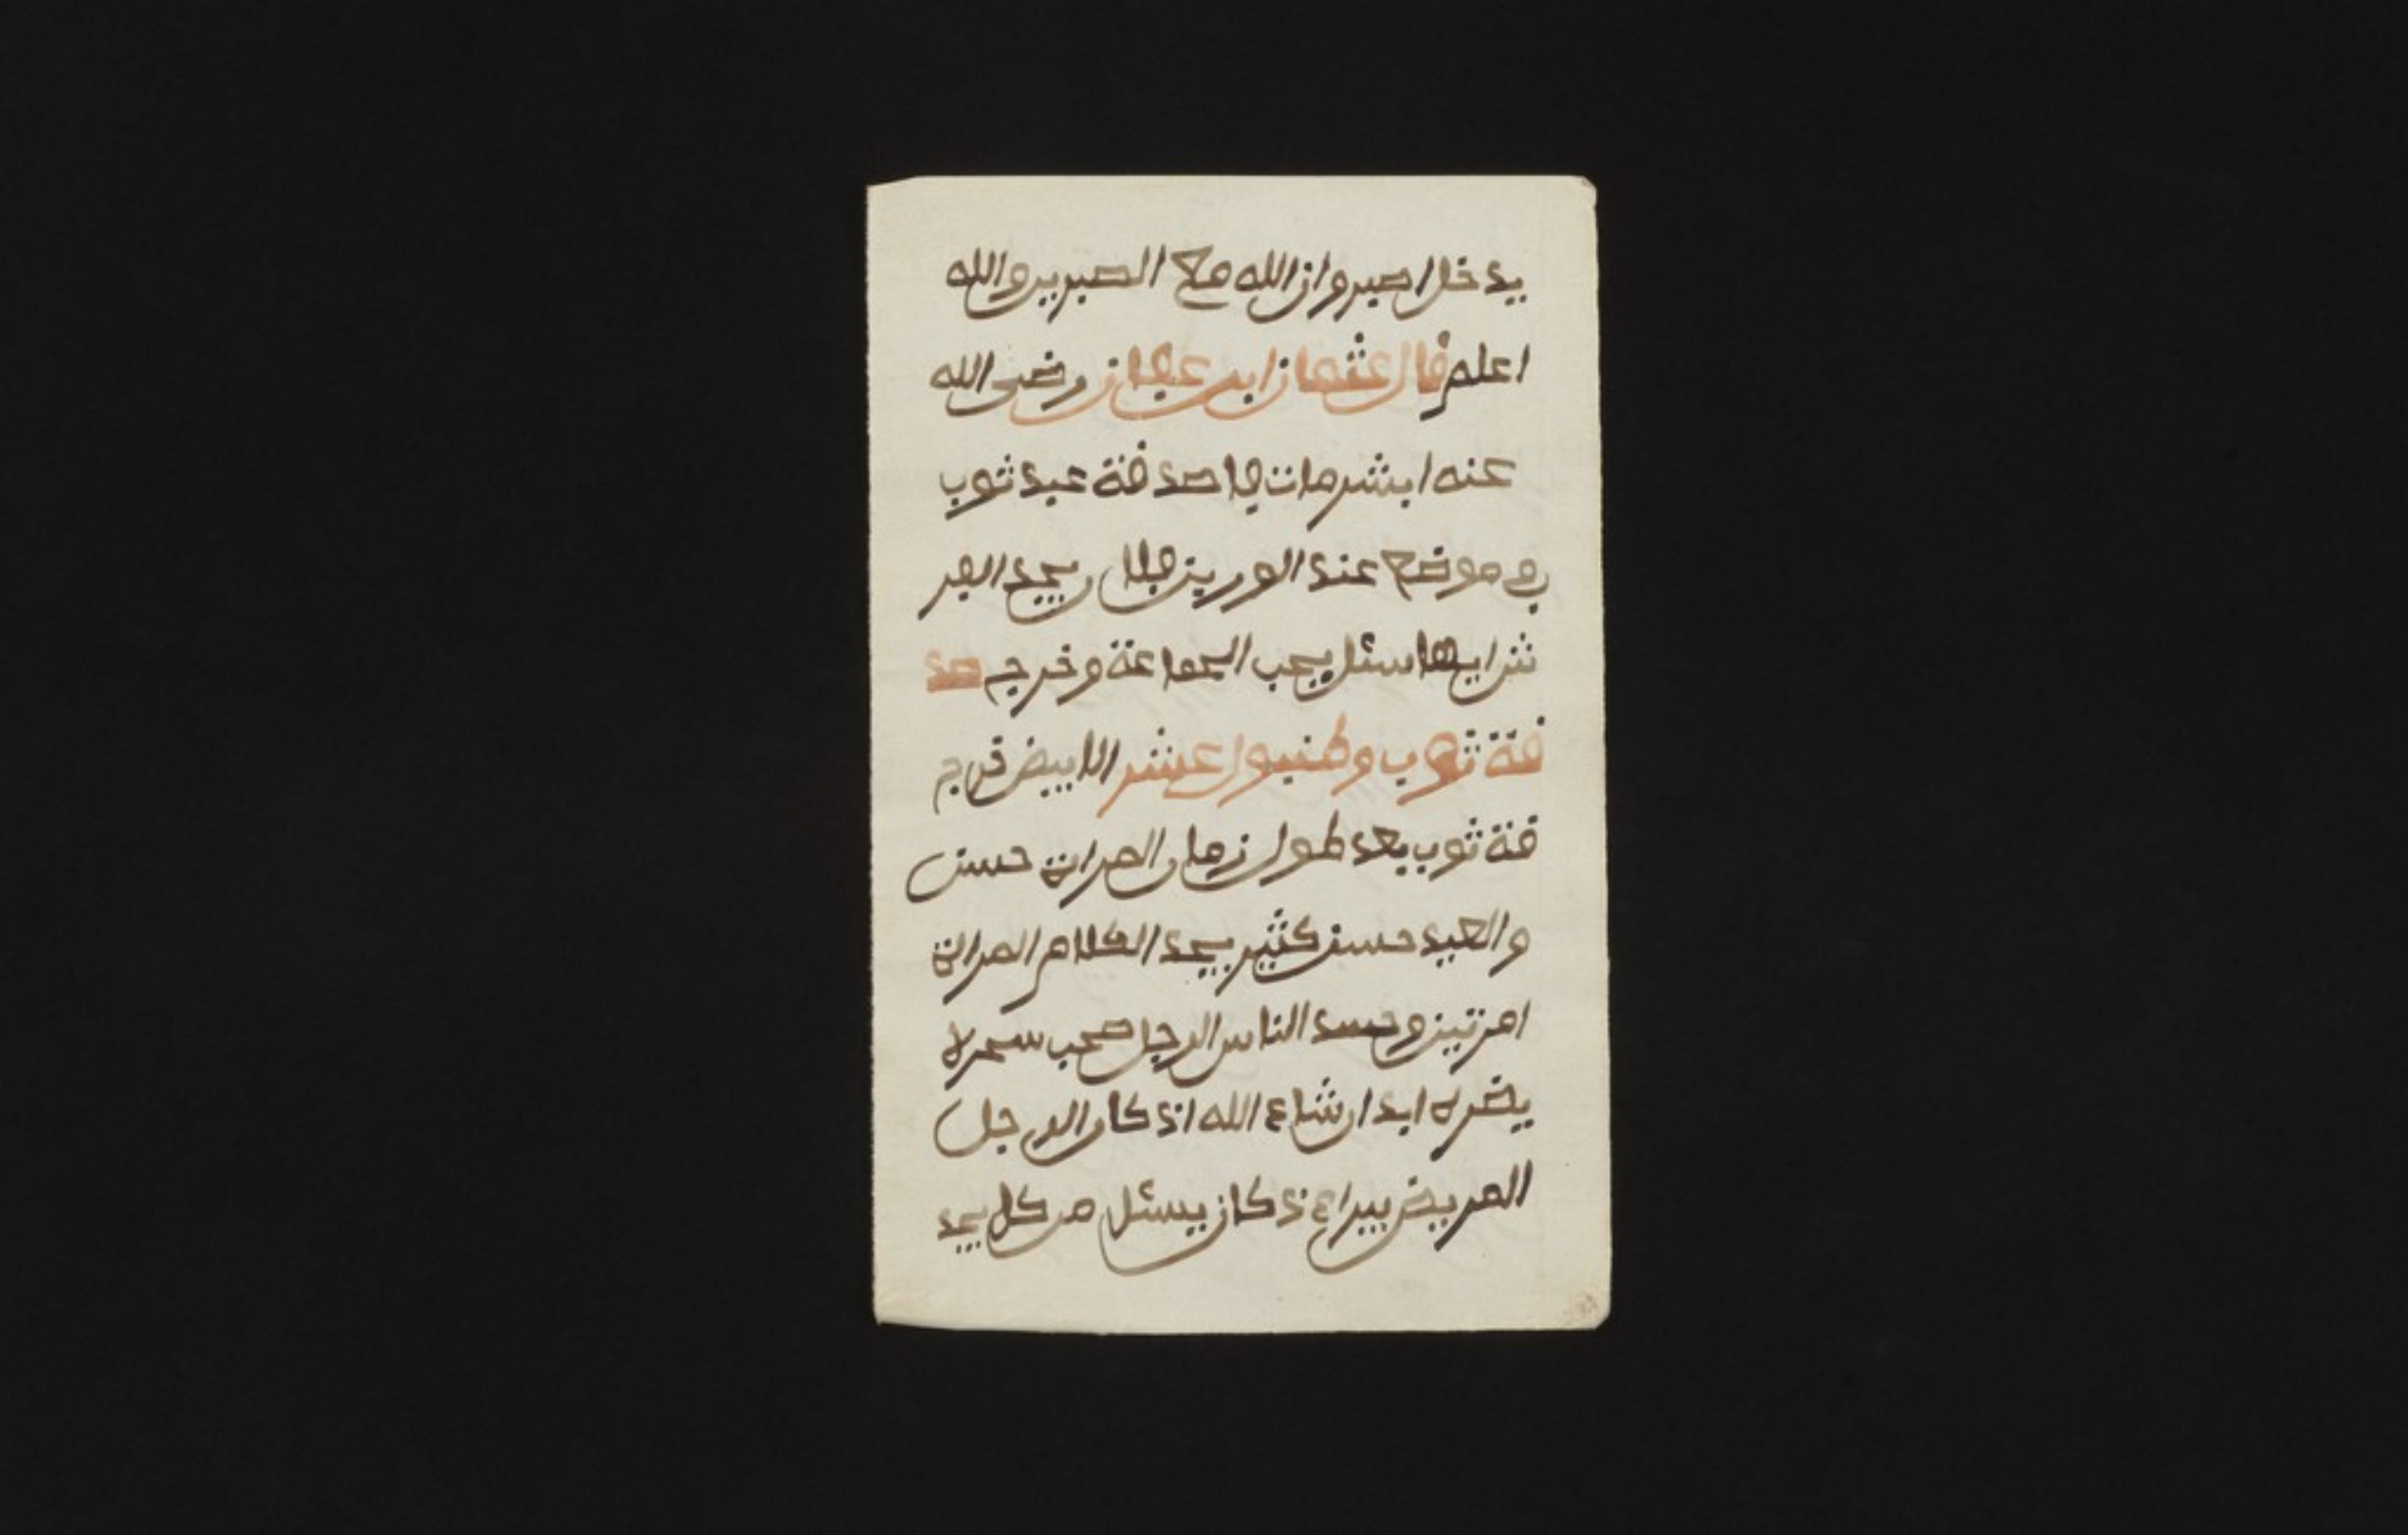 يدخل اصبروان الله مع الصبرين والله
اعلم قال عثمان ابن عفان رضى الله
عنه ابشر مات فا صدقة عبد ثوب
في موضع عند الورين فلان يجد الفر
ثم ايها سئل يحب الجماعة وخرج صد
قة ثوب وطنبول عشر الابيض فرج
قة ثوب بعد طول زمان المراة حسن
والعبد حسن كثير يجد الكلام المراة
امرتين وحسد الناس الرجل صحب سحر لا
يضره ابدا ان شاء الله اذ كان الرجل
المريض يبراء ذ كان يسئل من كل يجد